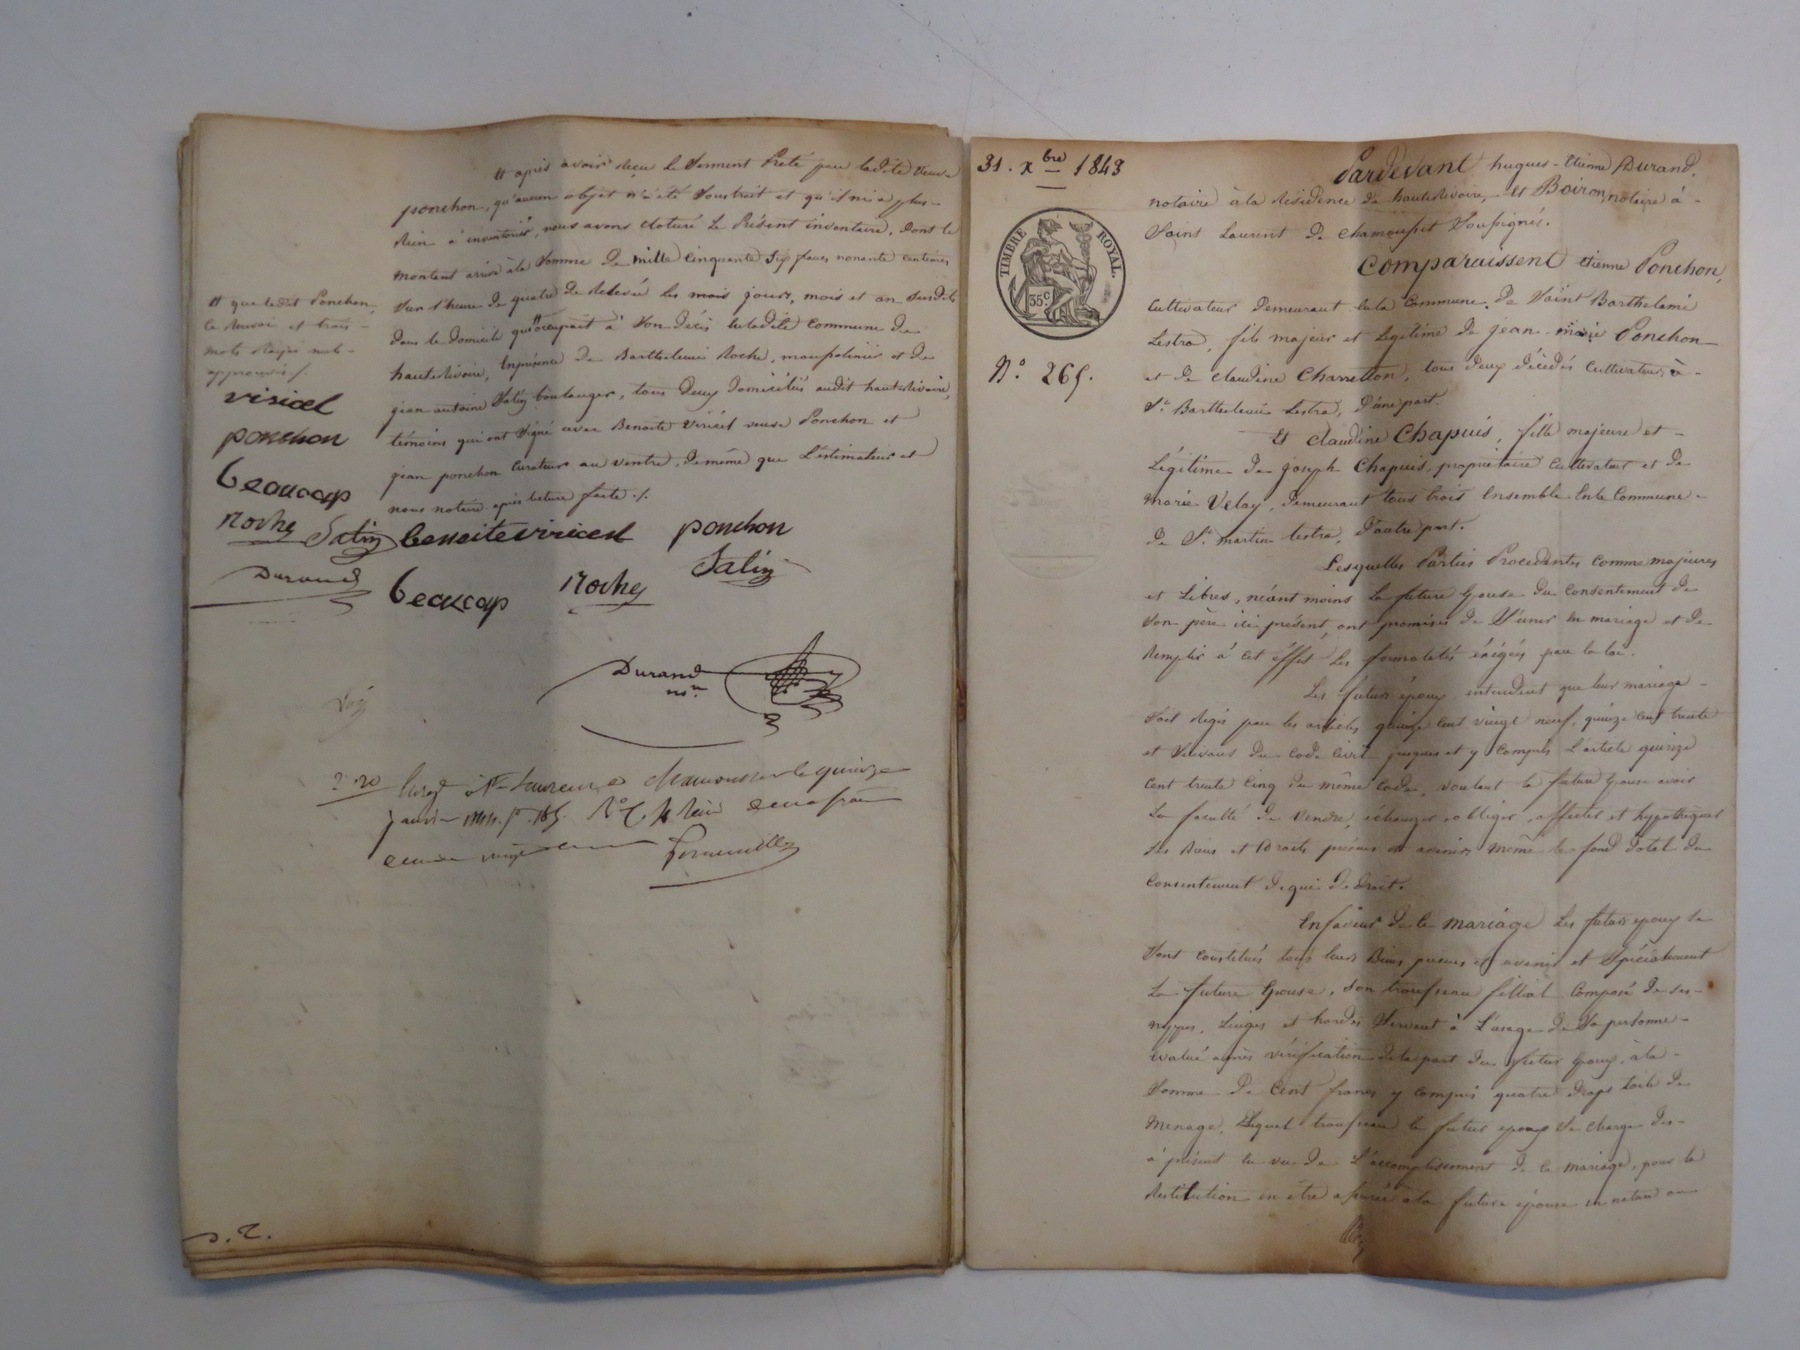 Et après avoir reçu le serment Prêté par ladite veuve
ponchon, qu'aucun objet n'a été soustrait et qu'il n'i a plus
Rien à inventorier, nous avons cloturé Le Présent inventaire, dont le
montant arrive à la somme de mille cinquante six francs nonante centimes
Sur l'heure de quatre de Relevée les mois jours, mois et an susdits
dans le domicile qu'occupait à son décès ladite commune de
hauterivoire, En présence de Barthelemie Roche, et de
jean antoine Satin boulanger, tous deux domiciliés audit hauterivoire,
témoins qui ont signé avec Benoite Viricel veuve Ponchon et
jean ponchon curateur au ventre, de même que L'estimateur et
nous notaire après lecture faite ./.
Et que ledit Ponchon,
ce renvoi et trois
mots Rayés nuls
approuvés /.
viricel
ponchon
beaucoup
Roche Satin benoite viricel ponchon
Satin
Durand
beaucoup Roche
Durand
nore
Enregé à St Laurent de Chamousset le quinze
janvier 1844. fo 185.
D. 2.
31. Xbre 1843
TIMBRE ROYAL.
35 c
No. 265.
Pardevant hugues-Etienne Durand,
notaire à la Résidence de hauterivoire, Et Boiron, notaire à
Saint Laurent de Chamousset Soussignés.
Comparaissent etienne Ponchon,
Cultivateur Demeurant en la Commune de Saint Barthelemi
Lestra, fils majeur et Légitime de jean marie Ponchon
et de claudine Charretton, tous deux décédés Cultivateurs à
St Barthelemi Lestra, D'une part.
Et claudine Chapuis, fille majeure et
Légitime de joseph Chapuis, propriétaire Cultivateur et de
marie Velay, Demeurant tous trois Ensemble En la Commune
de St martin lestra, D'autre part.
Lesquelles Parties Procédantes Comme majeures
et Libres, néant moins La future épouse du Consentement de
son père ici présent, ont promises de S'unir En mariage et de
Remplir à cet éffet Les formalités éxigées par la loi.
Les futurs époux intendent que leur mariage
Soit Régis par les articles quinze cent vingt neuf, quinze cent trente
et Suivans du Code Civil jusques et y Compris L'article quinze
Cent trente Cinq du même Code, voulant la future épouse avoir
La faculté de Vendre, échanger obliger, affecter et hypothéquer
Ses Biens et Droits présens et avenir, même le fond Dotal du
Consentement de qui de droit.
En faveur de ce mariage Les futurs epoux se
Sont constitués tous leurs Biens présens et avenir et Spécialement
La future épouse, Son trousseau fillial Composé de ses
nippes, Linges et hardes Servant à L'usage de Sa personne
évalué après vérification de la part du futur époux, à la
Somme De Cent francs y Compris quatre draps toile de
Menage, Lequel trousseau le futur epoux Se Charge dès
à présent En vu de L'accomplissement de ce mariage, pour la
Restitution en être assurée à la future épouse en nature ou